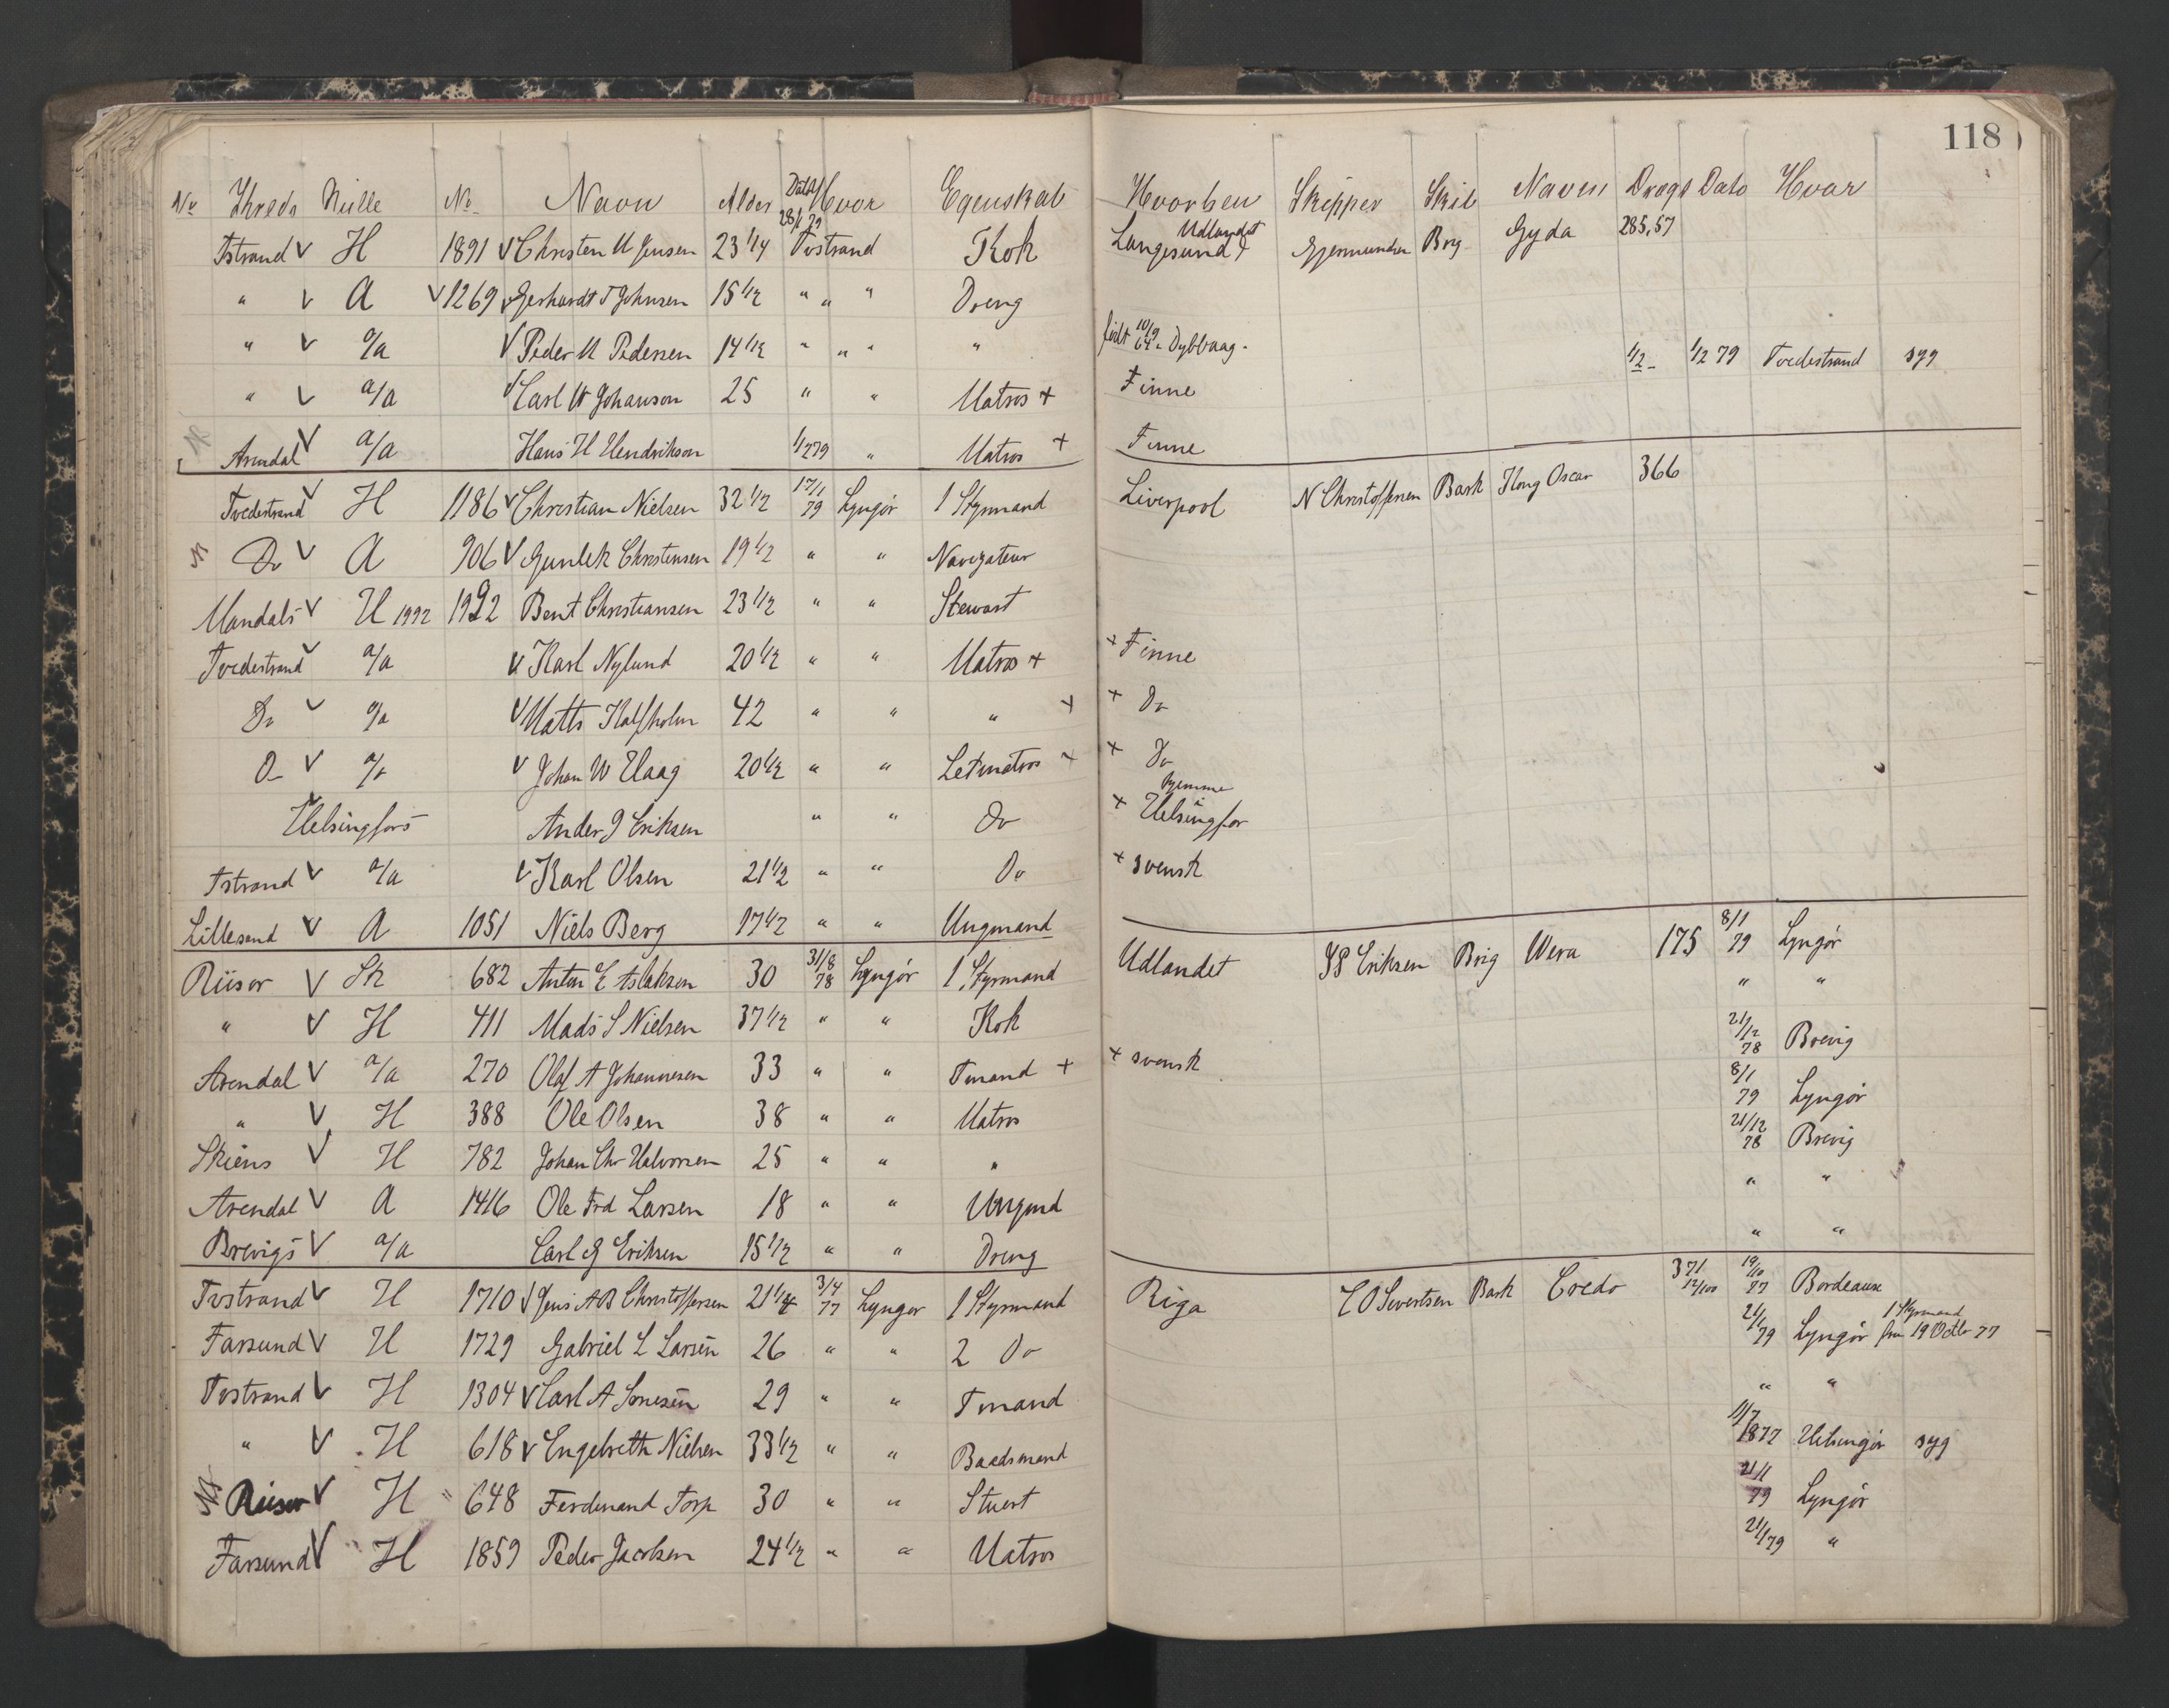 118
No Kreds Rulle No Navn Alder Dato Hvor Egenskab Hvorhen Skipper Skib Navn Drægt Dato Hvor
Tstrand V H 1891 V Christen M Jensen 23 1/4 28/1 79 Tvstrand Kok Langesund & Udlandet Gjermundsen Brg Gyda 285,57
" V A V 1269 V Gerhardt T Johnsen 15 1/2 " " " Dreng
" V a/a V Peder M Pedersen 14 1/2 " " " " født 10/9 64 Dybvaag. 1/2 - 1/2 79 Tvedestrand syg
" V a/a V Carl W Johanson 25 " " Matros + Finne
Arendal V a/a Hans H Hendrikson 1/2 79 " Matros + Finne
Tvedestrand V H 1186 V Christian Nielsen 32 1/2 17/1 79 Lyngør 1 Styrmand Liverpool N Christoffersen Bark Kong Oscar 366
Do V A 906 V Gunlek Christensen 19 1/2 " " Navigateur
Mandals V H 1992 1992 Bent Christiansen 23 1/2 " " Stewart
Tvedestrand V a/a V Karl Nylund 20 1/2 " " Matros + + Finne
Do V a/a V Matts Kalfholm 42 " " " + + Do
Do V a/a V Johan W Haag 20 1/2 " " Letmatros + + Do
Helsingfors Ander J Eriksen " " Do + hjemme i Helsingfor
Tstrand V a/a V Karl Olsen 21 1/2 " " Do + svensk
Lillesand V A 1051 Niels Berg 17 1/2 " " Ungmand
Riisør V Sk 682 Anton E Aslaksen 30 31/8 78 Lyngør 1 Styrmand Udlandet SP Eriksen Brig Wera 175 8/1 79 Lyngør
" V H 411 Mads S Nielsen 37 1/2 " " Kok " "
Arendal V a/a 270 Olaf A Johannesen 33 " " Tmand + + svensk 21/12 78 Brevig
" V H 388 Ole Olsen 38 " " Matros 8/1 79 Lyngør
Skiens V H 782 Johan Chr Halvorsen 25 " " " 21/12 78 Brevig
Arendal V A 1416 Ole Frd Larsen 18 " " Ungmd " "
Brevigs V a/a Carl G Eriksen 15 1/2 " " Dreng " "
Tvstrand V H 1710 V Jens AB Christoffersen 21 1/4 3/4 77 Lyngør 1 Styrmand Riga C O Severtsen Bark Credo 371 12/100 19/10 77 Bordeaux
Farsund V H 1729 Gabriel L Larsen 26 " " 2 Do 21/1 79 Lyngør 1 Styrmand fra 19 Octbr 77
Tvstrand V H 1304 V Carl A Sørresen 29 " " Tmand " "
" V H 618 V Engebreth Nielsen 33 1/2 " " Baadsmand 11/7 1877 Helsingør syg
Riisør V H " 648 Ferdinand Torp 30 " " Stuert 21/1 79 Lyngør
Farsund V H 1859 Peder Jacobsen 24 1/2 " " Matros 21/1 79 "